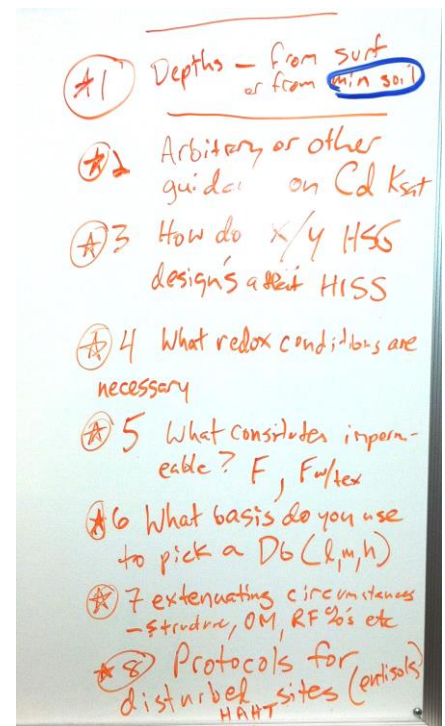 #1 Depths - from surf
or from min soil
#2 Arbitrary or other
on Cd Ksat
#3 How do x/y HSG
HISS
#4 What redox conditions are
necessary
#5 What constitutes imperm-
eable? F, Fw/tex
#6 What basis do you use
to pick a Db (l,m,h)
#7 extenuating circumstances
- structure, OM, RF %'s etc
#8 Protocols for
disturbed sites (entisols)
HAHT